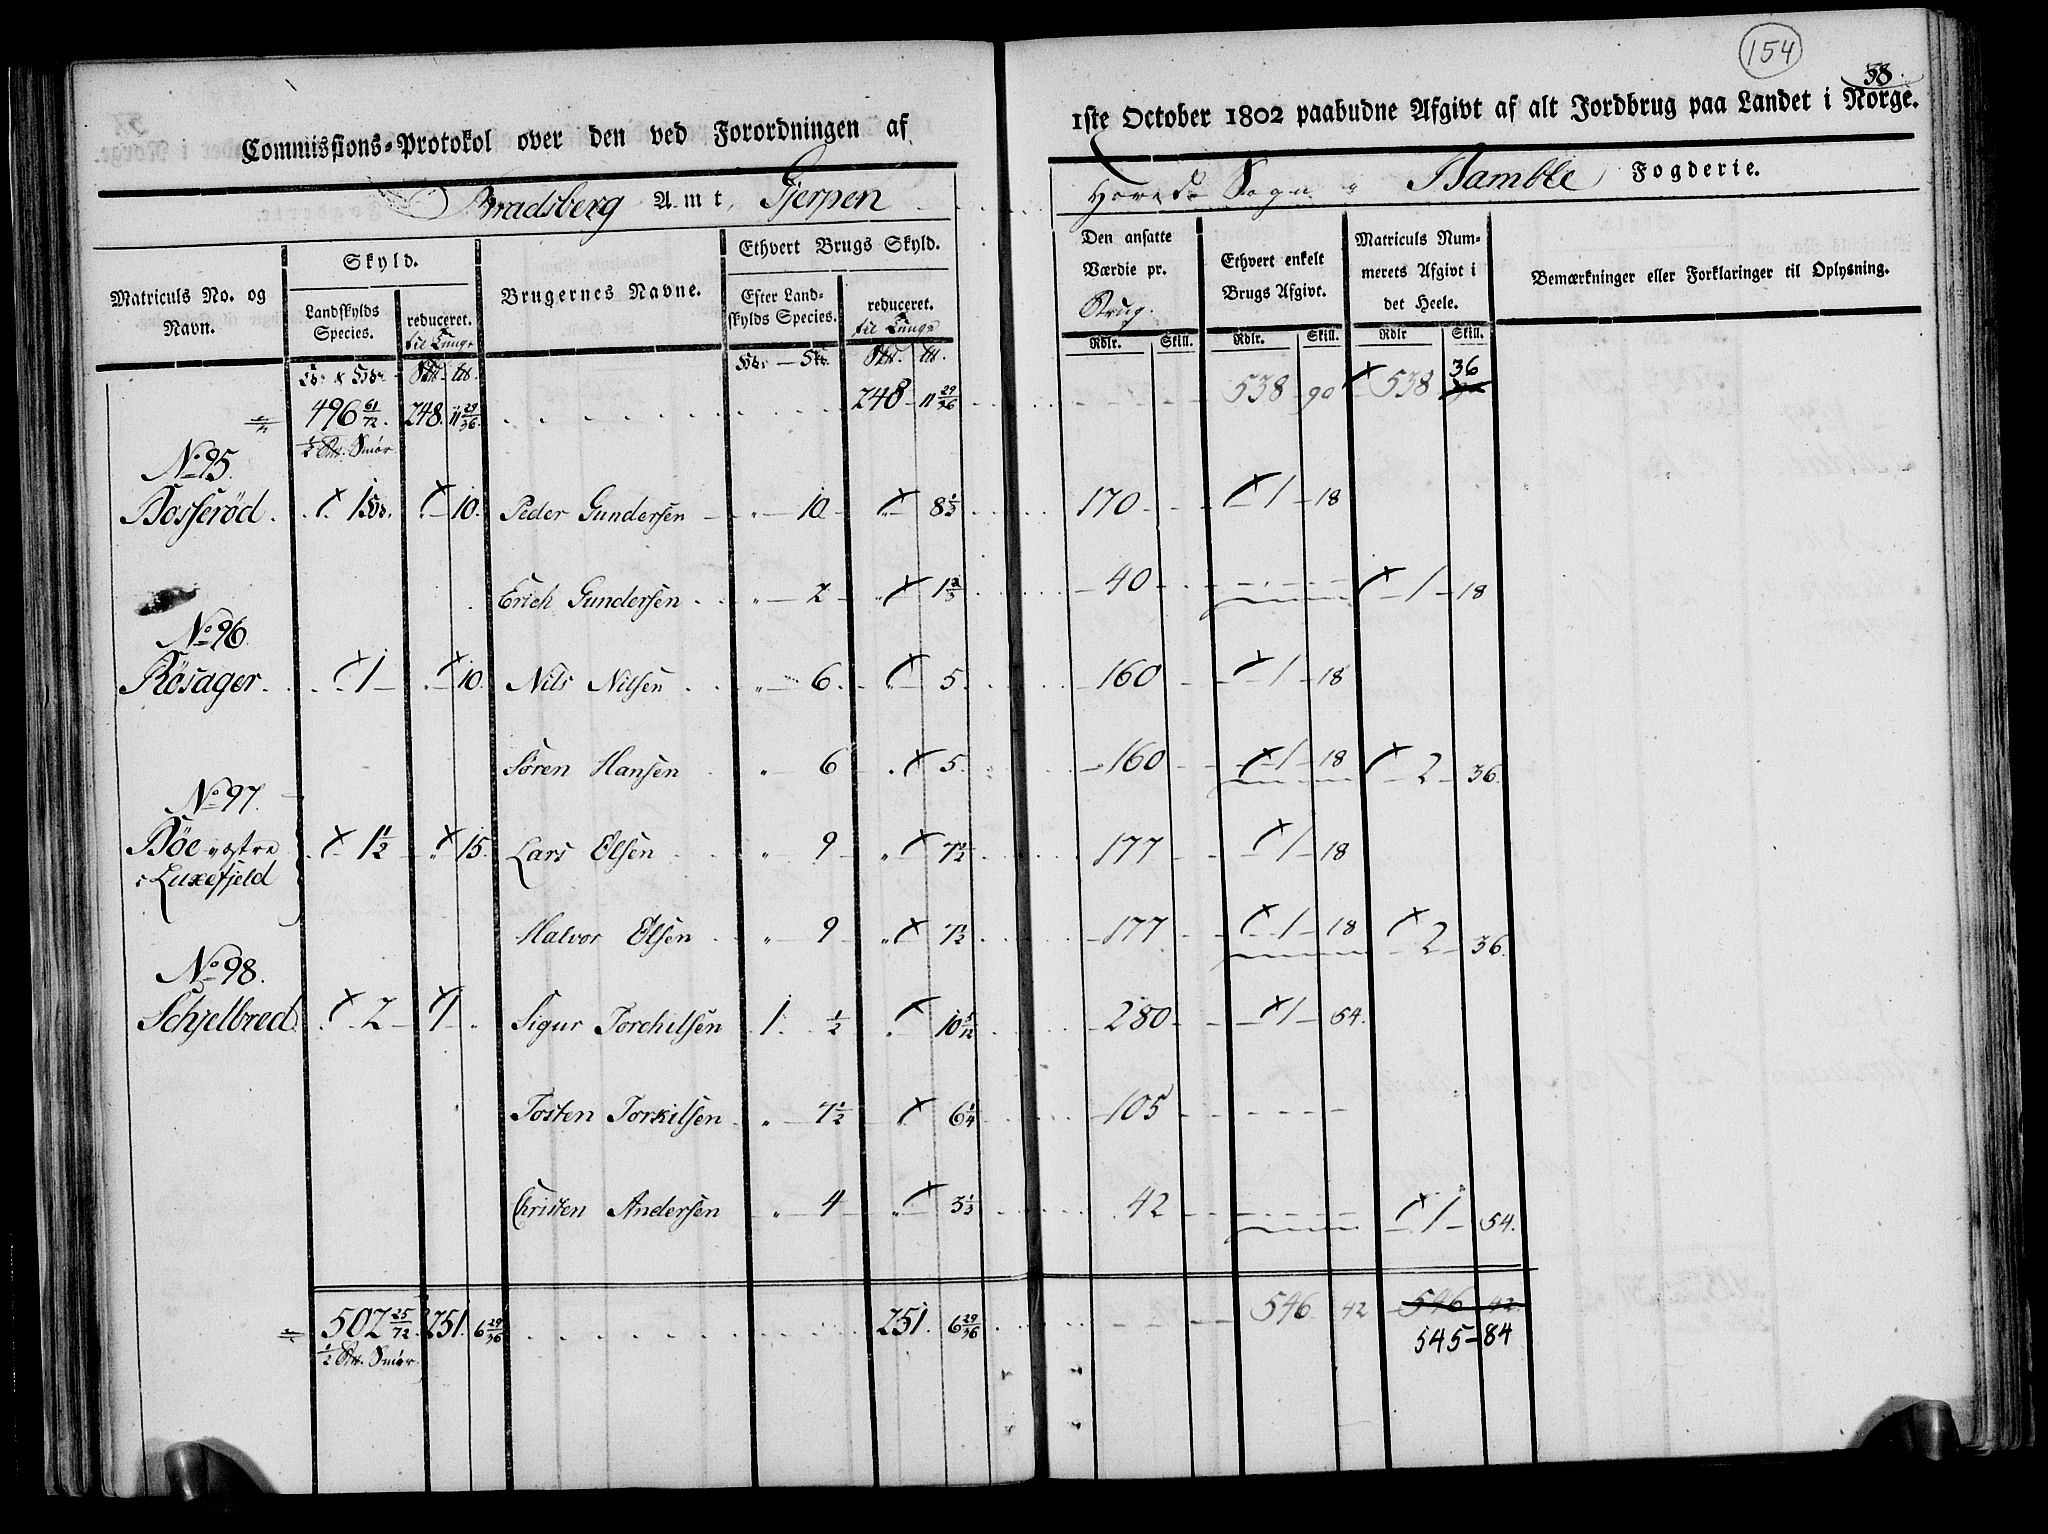 154
58.
Commissions-Protokol over den ved Forordningen af
1ste October 1802 paabudne Afgivt af alt Jordbrug paa Landet i Norge.
Bradsberg Amt, Gjerpen
Hoved Sogn Bamble Fogderie.
Matriculs No. og Navn.
Skyld.
Landskylds Species.
reduceret. til Tunge
Brugernes Navne.
Ethvert Brugs Skyld.
Efter Landskylds Species.
reduceret. til Tunge
Den ansatte Værdie pr. Brug.
Ethvert enkelt Brugs Afgivt.
Matriculs Nummerets Afgivt i det Heele.
Bemærkninger eller Forklaringer til Oplysning.
Rdlr. Skill. Rdlr. Skill. Rdlr Skill.
496 61/72. 248. 11 29/36. 248 - 11 29/36 538 - 90 538 36
1/2 Smør
No 95.
Bosserød. 1 10. Peder Gundersen - " - 10 - 8 1/3 170 1 - 18
Erich Gundersen " - 2 - 1 2/3 40 1 - 18
No 96.
Røsager. 1 10. Nils Nilsen " - 6 - 5 160 1 - 18
Søren Hansen " - 6 5. 160 1 - 18 2 - 36.
No 97.
Bøe vestre i Luxefjeld 1 1/2 15. Lars Elsen " - 9 7 1/2 177 1 - 18
Halvor Elsen " - 9 7 1/2 177 1 - 18 2 - 36.
No 98.
Schjelbred 2 1 Sigur Torchilsen 1. 1/2 10 5/12 280 1 - 54.
Tosten Torkilsen " - 7 1/2 6 1/4 105
Christen Andersen " - 4 3 1/3 42 1 - 54.
502 25/72 251. 6 29/36 251. 6 29/36 546 42 546 42
1/2 Smør 545 - 84